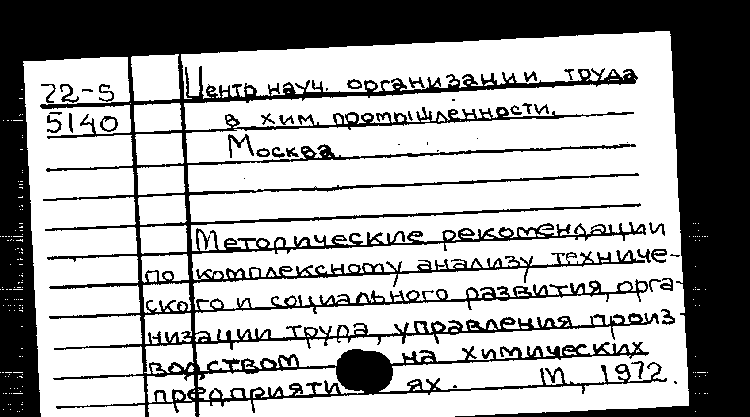 72-5 Центр науч. организации труда
5140 в хим. промышленности.
Москва.
Методические рекомендации
по комплексному анализу техниче-
ского и социального развития, орга-
низации труда, управления произ-
водством на химических
предприяти ях. М., 1972.